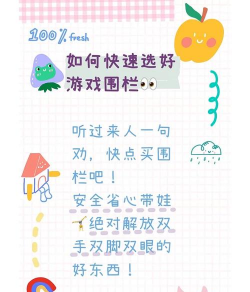 100% fresh
如何快速选好
游戏围栏👀
听过来人一句
劝，快点买围
栏吧！
安全省心带娃
🤸绝对解放双
手双脚双眼的
好东西！